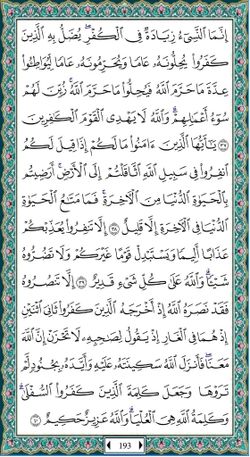 إِنَّمَا النَّسِيءُ زِيَادَةٌ فِي الْكُفْرِ يُضَلُّ بِهِ الَّذِينَ
كَفَرُوا يُحِلُّونَهُ عَامًا وَيُحَرِّمُونَهُ عَامًا لِيُوَاطِئُوا
عِدَّةَ مَا حَرَّمَ اللَّهُ فَيُحِلُّوا مَا حَرَّمَ اللَّهُ زُيِّنَ لَهُمْ
سُوءُ أَعْمَالِهِمْ وَاللَّهُ لَا يَهْدِي الْقَوْمَ الْكَافِرِينَ
٣٧ يَا أَيُّهَا الَّذِينَ آمَنُوا مَا لَكُمْ إِذَا قِيلَ لَكُمُ
انْفِرُوا فِي سَبِيلِ اللَّهِ اثَّاقَلْتُمْ إِلَى الْأَرْضِ أَرَضِيتُمْ
بِالْحَيَاةِ الدُّنْيَا مِنَ الْآخِرَةِ فَمَا مَتَاعُ الْحَيَاةِ
الدُّنْيَا فِي الْآخِرَةِ إِلَّا قَلِيلٌ ٣٨ إِلَّا تَنْفِرُوا يُعَذِّبْكُمْ
عَذَابًا أَلِيمًا وَيَسْتَبْدِلْ قَوْمًا غَيْرَكُمْ وَلَا تَضُرُّوهُ
شَيْئًا وَاللَّهُ عَلَى كُلِّ شَيْءٍ قَدِيرٌ ٣٩ إِلَّا تَنْصُرُوهُ
فَقَدْ نَصَرَهُ اللَّهُ إِذْ أَخْرَجَهُ الَّذِينَ كَفَرُوا ثَانِيَ اثْنَيْنِ
إِذْ هُمَا فِي الْغَارِ إِذْ يَقُولُ لِصَاحِبِهِ لَا تَحْزَنْ إِنَّ اللَّهَ
مَعَنَا فَأَنْزَلَ اللَّهُ سَكِينَتَهُ عَلَيْهِ وَأَيَّدَهُ بِجُنُودٍ لَمْ
تَرَوْهَا وَجَعَلَ كَلِمَةَ الَّذِينَ كَفَرُوا السُّفْلَى
وَكَلِمَةُ اللَّهِ هِيَ الْعُلْيَا وَاللَّهُ عَزِيزٌ حَكِيمٌ ٤٠
193